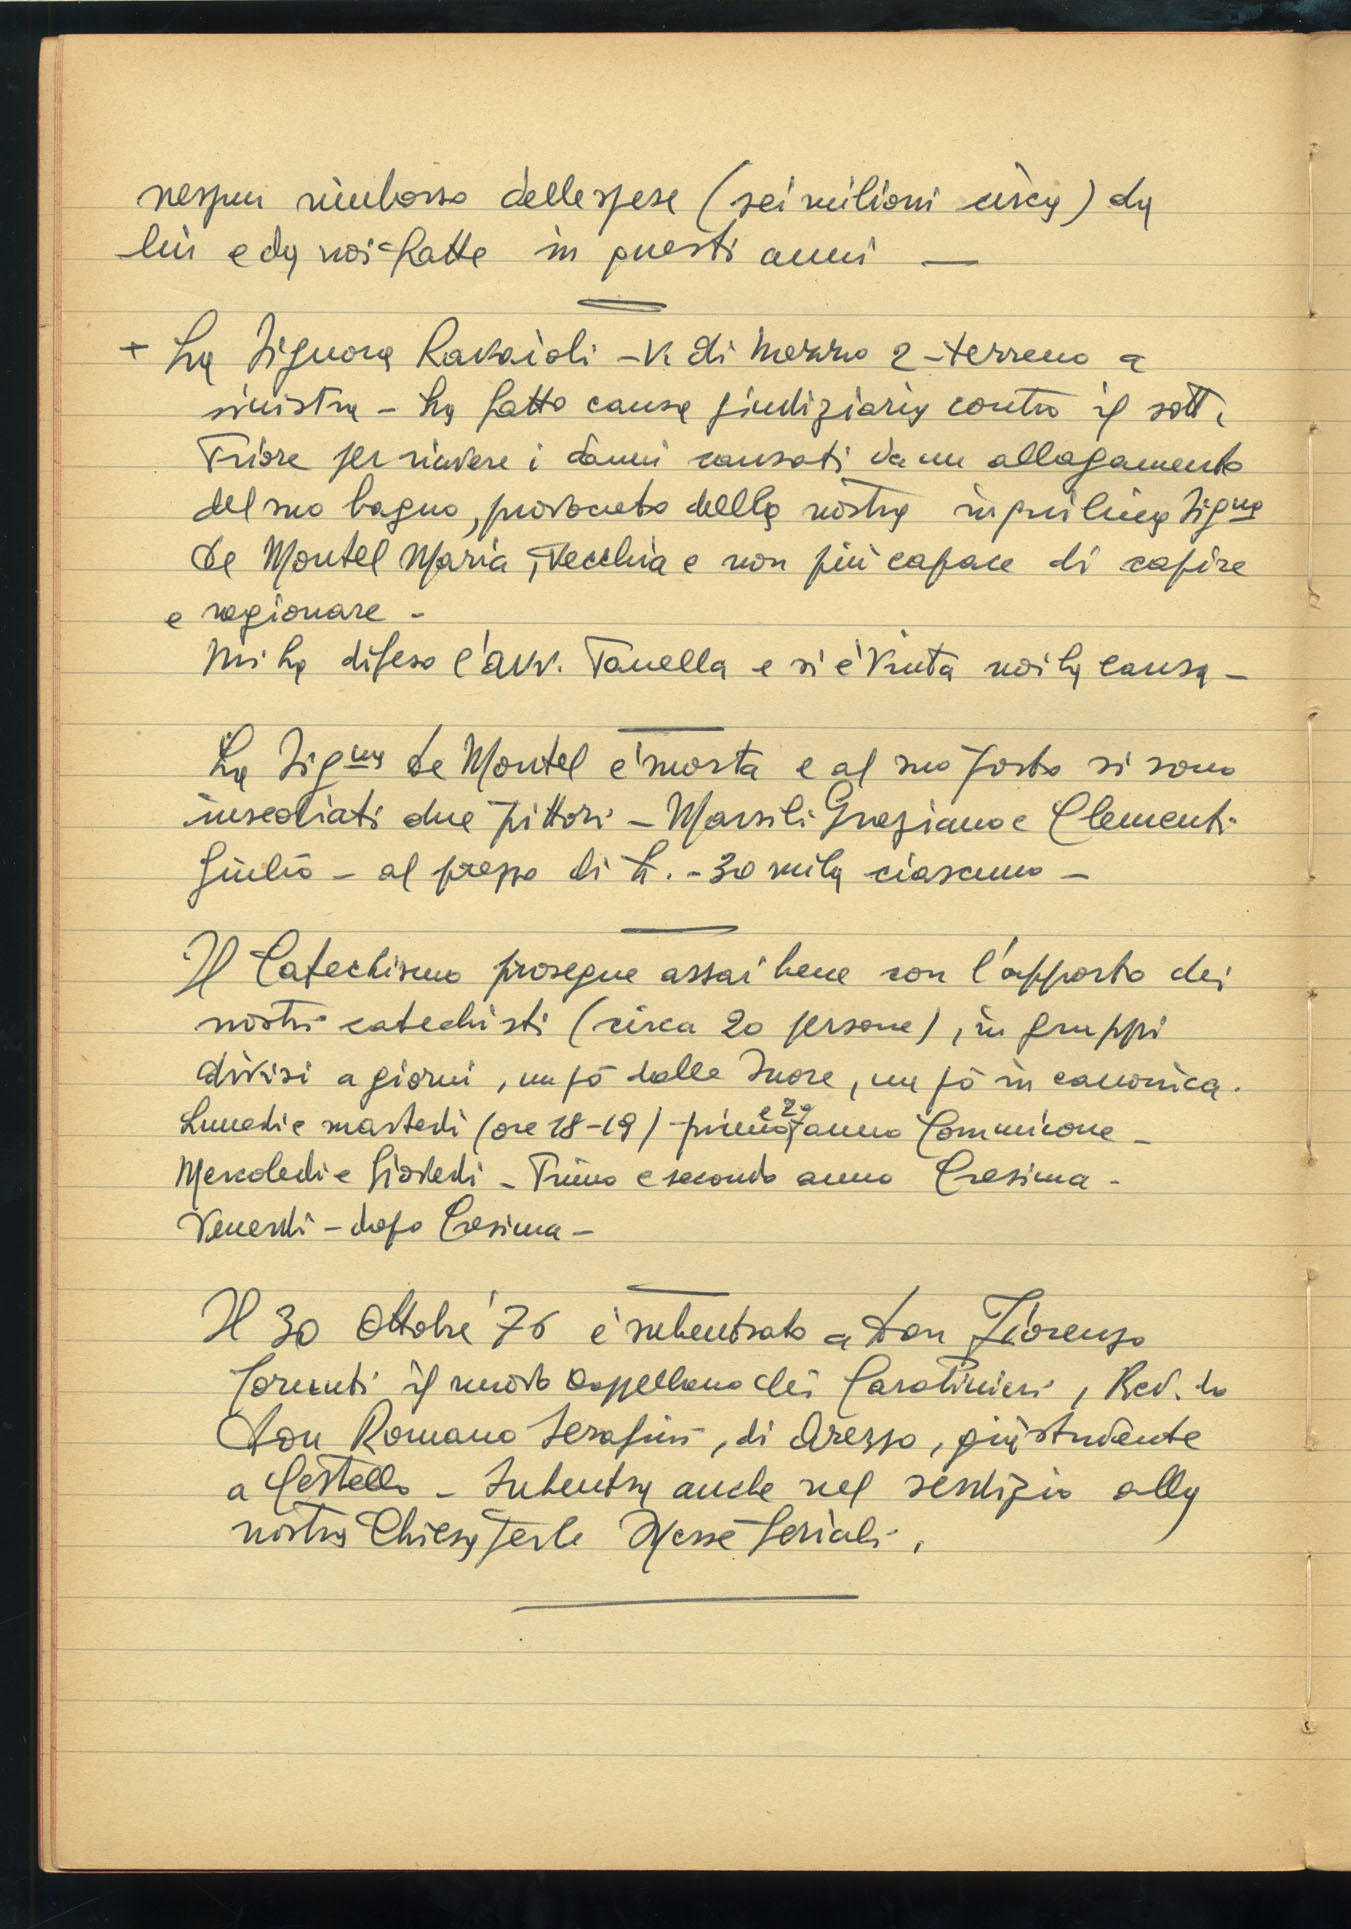 nessun rimborso delle spese (sei milioni circa) da
lui e da noi fatte in questi anni —
+ La Signora Ravaioli - V. di Mezzo 2 - terreno a
sinistra - ha fatto causa giudiziaria contro il sott.
Priore per riavere i danni causati da un allagamento
del suo bagno, provocato della nostra inquilina Sig.na
De Montel Maria, vecchia e non più capace di capire
e ragionare -
Mi ha difeso l'avv. Tanella e si è vinta noi la causa -
La Sig.na De Montel è morta e al suo posto si sono
insediati due pittori - Marsili Graziano e Clementi
Giulio - al prezzo di L. - 30 mila ciascuno -
Il Catechismo prosegue assai bene con l'apporto dei
nostri catechisti (circa 20 persone), in gruppi
divisi a giorni, un pò dalle Suore, un pò in canonica.
Lunedì e martedì (ore 18-19) primo e 2° anno Comunione -
Mercoledì e Giovedì - Primo e secondo anno Cresima -
Venerdì - dopo Cresima -
Il 30 Ottobre '76 è subentrato a Don Fiorenzo
il nuovo Cappellano dei Carabinieri, Rev.do
Don Romano Serafini, di Arezzo, già studente
a Cestello - Subentra anche nel servizio alla
nostra Chiesa per le Messe feriali.